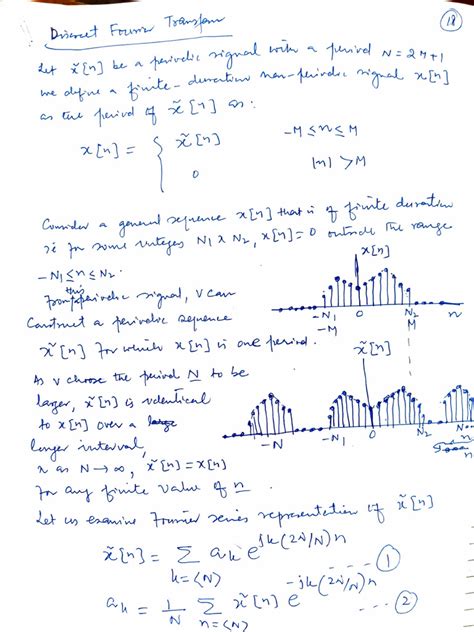 18
Discreet Fourier Transform
Let x̃[n] be a periodic signal with a period N = 2M+1
we define a finite-duration non-periodic signal x[n]
as the period of x̃[n] as:
x[n] = { x̃[n] -M ≤ n ≤ M
0 |n| > M
Consider a general sequence x[n] that is of finite duration
ie for some integes N1 & N2, x[n] = 0 outside the range
-N1 ≤ n ≤ N2.
x[n]
From this aperiodic signal, v can
Construct a periodic sequence
-N1 0 N2 n
-M M
x̃[n] for which x[n] is one period.
x̃[n]
As v choose the period N to be
larger, x̃[n] is identical
to x[n] over a
longer interval,
-N -N1 0 N2 N
n
n as N → ∞, x̃[n] = x[n]
for any finite value of n.
Let us examine Fourier series representation of x̃[n]
x̃[n] = Σ ak e^jk(2π/N)n
k=⟨N⟩ — ①
ak = 1/N Σ x̃[n] e^-jk(2π/N)n
n=⟨N⟩ — ②